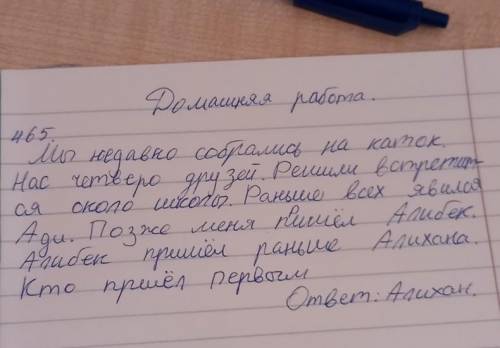 Домашняя работа.
465.
Мы недавно собрались на каток.
Нас четверо друзей. Решили встретит-
ся около школы. Раньше всех явился
Ади. Позже меня пишёл Алибек.
Алибек пришёл раньше Алихана.
Кто пришёл первым
Ответ: Алихан.